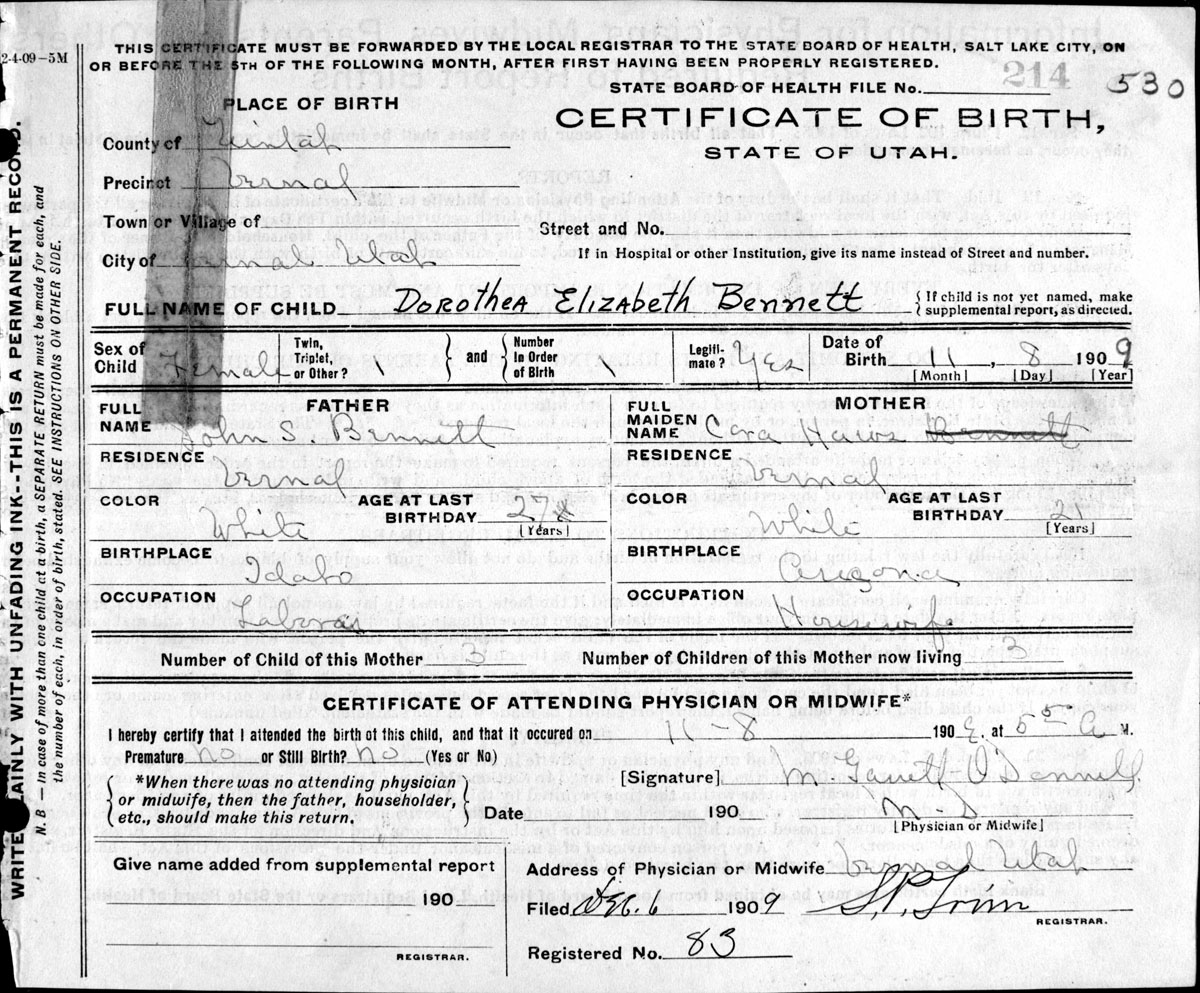 2-4-09-5M
THIS CERTIFICATE MUST BE FORWARDED BY THE LOCAL REGISTRAR TO THE STATE BOARD OF HEALTH, SALT LAKE CITY, ON
OR BEFORE THE 5TH OF THE FOLLOWING MONTH, AFTER FIRST HAVING BEEN PROPERLY REGISTERED.
214
STATE BOARD OF HEALTH FILE No. 530
PLACE OF BIRTH
CERTIFICATE OF BIRTH,
STATE OF UTAH.
County of Uintah
Precinct Vernal
Town or Village of
Street and No.
City of Vernal Utah
If in Hospital or other Institution, give its name instead of Street and number.
FULL NAME OF CHILD Dorothea Elizabeth Bennett {If child is not yet named, make supplemental report, as directed.
Sex of Child Female Twin, Triplet, or Other? 1 } and { Number In Order of Birth 1 Legiti-mate? Yes Date of Birth 11, 8 1909
[Month] [Day] [Year]
FATHER
MOTHER
FULL NAME John S. Bennett
FULL MAIDEN NAME Cora Haws Bennett
RESIDENCE Vernal
RESIDENCE Vernal
COLOR White AGE AT LAST BIRTHDAY 27 [Years]
COLOR White AGE AT LAST BIRTHDAY 21 [Years]
BIRTHPLACE Idaho
BIRTHPLACE Arizona
OCCUPATION Laborer
OCCUPATION Housewife
Number of Child of this Mother 3 Number of Children of this Mother now living 3
CERTIFICATE OF ATTENDING PHYSICIAN OR MIDWIFE*
I hereby certify that I attended the birth of this child, and that it occured on 11-8 1909, at 5 05 A M.
Premature no or Still Birth? no (Yes or No)
*When there was no attending physician
or midwife, then the father, householder,
etc., should make this return.
[Signature] M Garrett O'Donnell
Date 190 M D
[Physician or Midwife]
Give name added from supplemental report
190
REGISTRAR.
Address of Physician or Midwife Vernal Utah
Filed Dec. 6 1909 S.P. Trim
REGISTRAR.
Registered No. 83
WRITE PLAINLY WITH UNFADING INK--THIS IS A PERMANENT RECORD.
N. B.—In case of more than one child at a birth, a SEPARATE RETURN must be made for each, and
the number of each, in order of birth, stated. SEE INSTRUCTIONS ON OTHER SIDE.